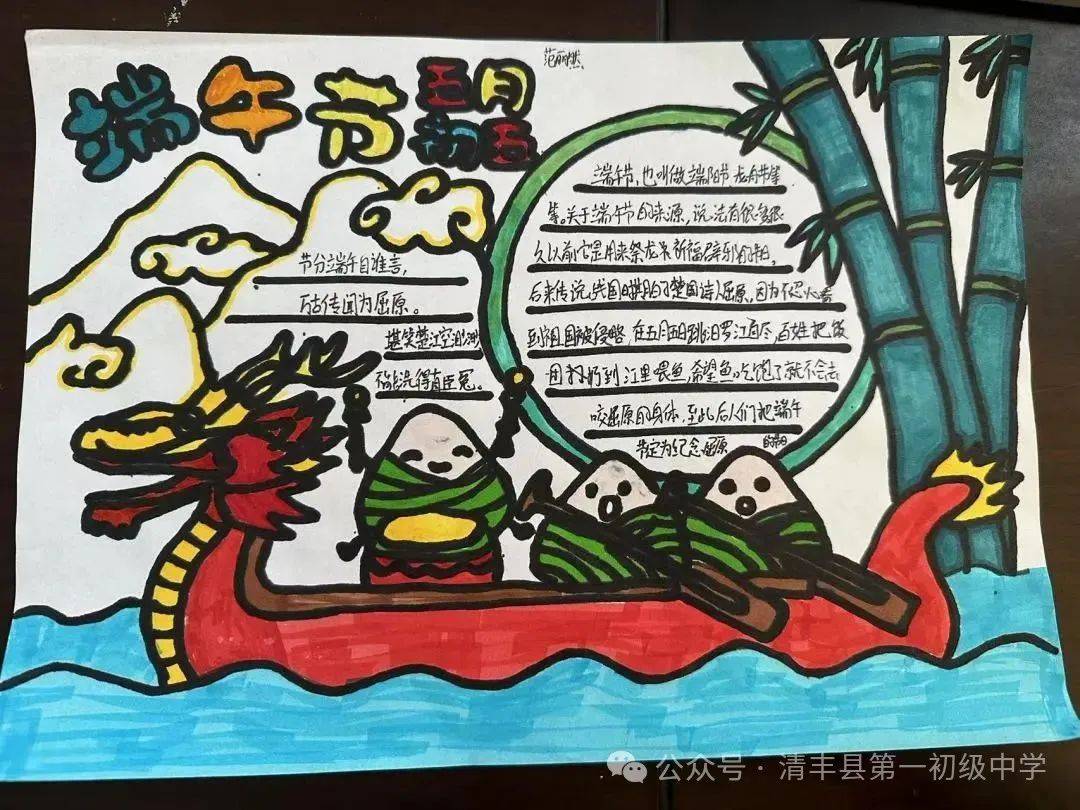 端午节
五月
初五
范丽燃
节分端午自谁言，
万古传闻为屈原。
堪笑楚江空渺渺
不能洗得直臣冤。
端午节，也叫做端阳节 龙舟节等
等。关于端午节的来源，说法有很多，很
久以前它是用来祭龙祖 祈福辟邪的节日，
后来传说，战国时期的楚国诗人屈原，因为不忍心看
到祖国被侵略 在五月五日跳汨罗江自尽，百姓把饭
团 扔到江里喂鱼，希望鱼吃饱了就不会去
咬屈原的身体，至此后人们把端午
节定为纪念屈原 的节日
公众号·清丰县第一初级中学